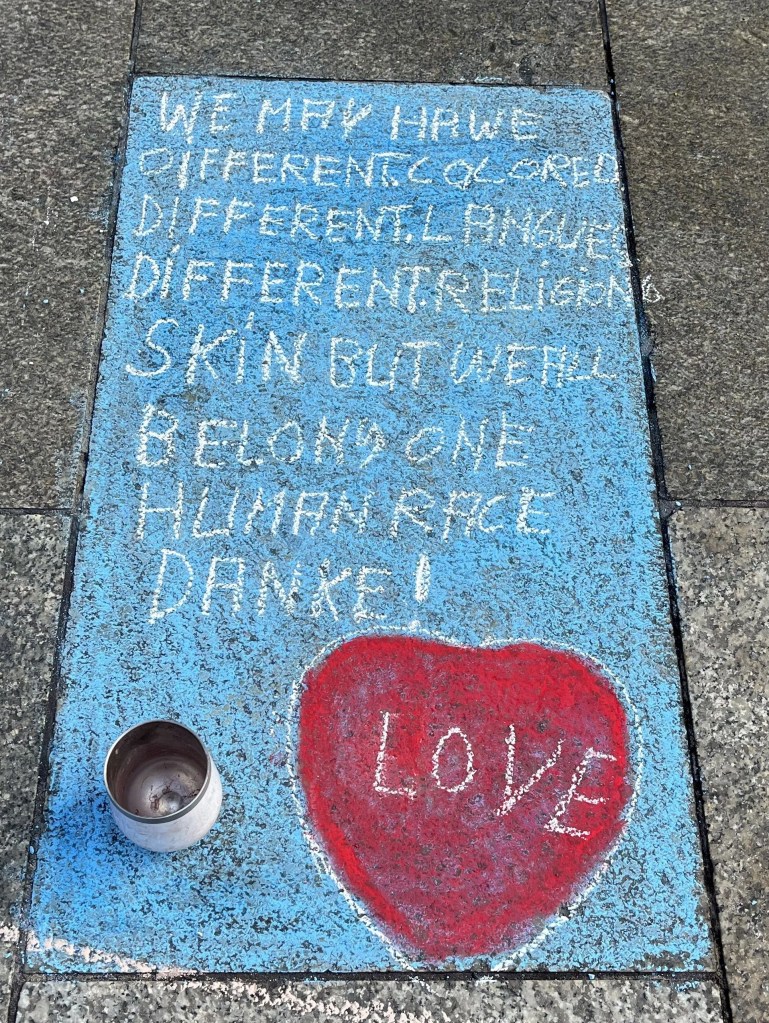 WE MAY HAWE
DIFFERENT.COLORED
DIFFERENT.LANGUES
DIFFERENT.RELIGIONS
SKIN BUT WE ALL
BELONG ONE
HUMAN RACE
DANKE!
LOVE